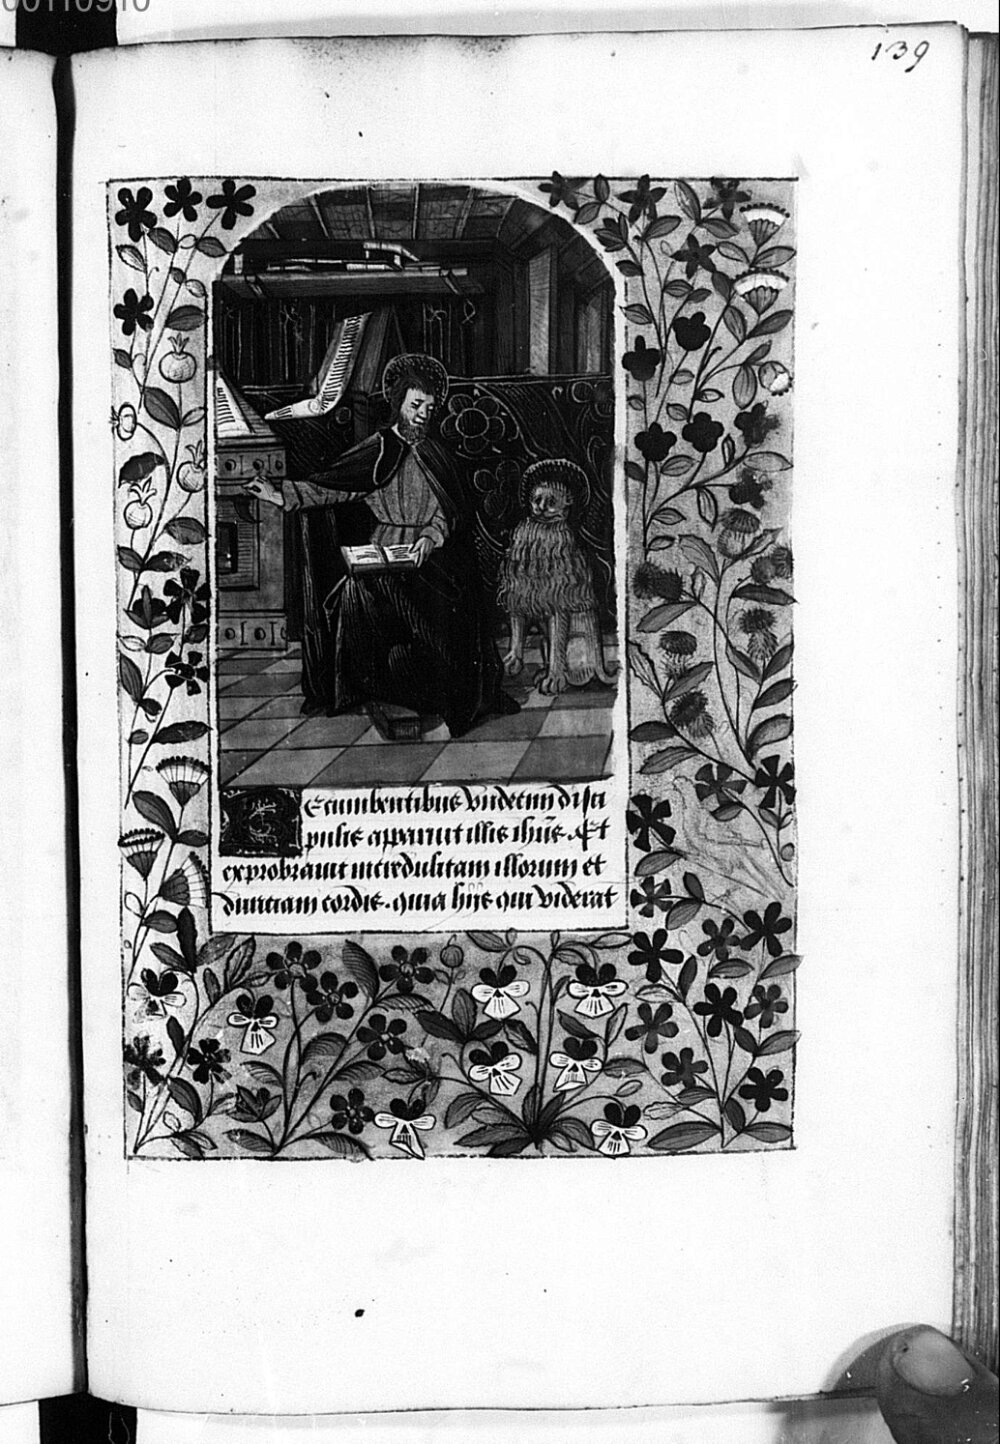 00110910
139
Recumbentibus undecim disci
pulis apparuit illis ihūs. Et
exprobrauit incredulitatem illorum et
duriciam cordis. quia hijs qui viderat